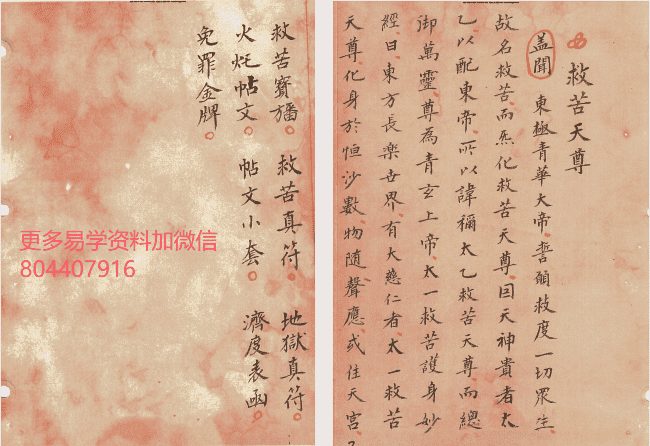 救苦天尊
盖聞 東極青華大帝誓願救度一切眾生
故名救苦而炁化救苦天尊囙天神貴者太
乙以配東帝所以諱稱太乙救苦天尊而總
御萬靈尊為青玄上帝太一救苦護身妙
經曰東方長樂世界有大慈仁者太一救苦
天尊化身於恒沙數物隨聲應或住天宮
救苦寶旛 救苦真符 地獄真符
火炬帖文 帖文小套 濟度表函
免罪金牌
更多易学资料加微信
804407916